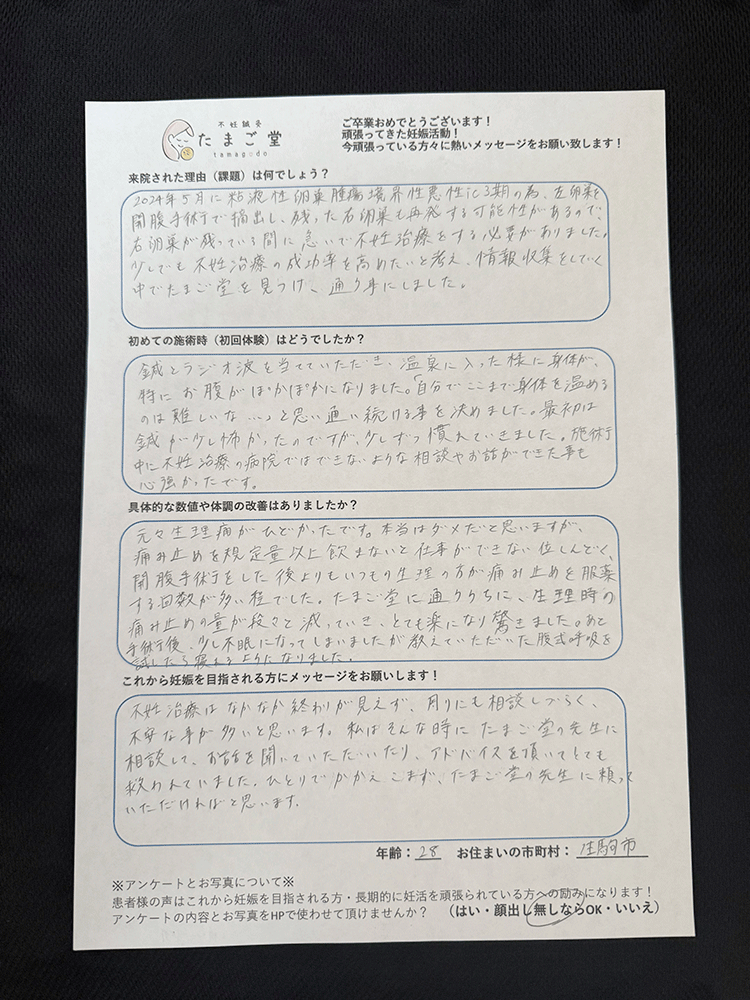 不妊鍼灸
たまご堂
tamagodo
ご卒業おめでとうございます！
頑張ってきた妊娠活動！
今頑張っている方々に熱いメッセージをお願い致します！
来院された理由（課題）は何でしょう？
2024年5月に粘液性卵巣腫瘍境界性悪性ic3期の為、左卵巣を
開腹手術で摘出し、残った右卵巣も再発する可能性があるので、
右卵巣が残っている間に急いで不妊治療をする必要がありました。
少しでも不妊治療の成功率を高めたいと考え、情報収集をしていく
中でたまご堂を見つけ、通う事にしました。
初めての施術時（初回体験）はどうでしたか？
鍼とラジオ波を当てていただき、温泉に入った様に身体が、
特にお腹がぽかぽかになりました。「自分でここまで身体を温める
のは難しいな…」と思い通い続ける事を決めました。最初は
鍼が少し怖かったのですが、少しずつ慣れていきました。施術
中に不妊治療の病院ではできないような相談やお話ができた事も
心強かったです。
具体的な数値や体調の改善はありましたか？
元々生理痛がひどかったです。本当はダメだと思いますが、
痛み止めを規定量以上飲まないと仕事ができない位しんどく、
開腹手術をした後よりもいつもの生理の方が痛み止めを服薬
する回数が多い程でした。たまご堂に通ううちに、生理時の
痛み止めの量が段々と減っていき、とても楽になり驚きました。あと
手術後、少し不眠になってしまいましたが教えていただいた腹式呼吸を
試したら寝れるようになりました。
これから妊娠を目指される方にメッセージをお願いします！
不妊治療はなかなか終わりが見えず、周りにも相談しづらく、
不安な事が多いと思います。私はそんな時にたまご堂の先生に
相談して、お話を聞いていただいたり、アドバイスを頂いてとても
救われていました。ひとりでかかえこまず、たまご堂の先生に頼って
いただければと思います。
年齢：28 お住まいの市町村：生駒市
※アンケートとお写真について※
患者様の声はこれから妊娠を目指される方・長期的に妊活を頑張られている方への励みになります！
アンケートの内容とお写真をHPで使わせて頂けませんか？ （はい・顔出し無しならOK・いいえ）